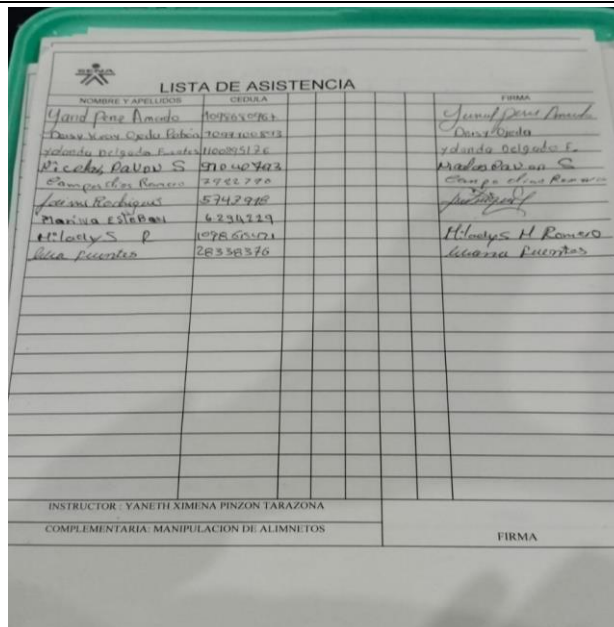 SENA
LISTA DE ASISTENCIA
NOMBRE Y APELLIDOS CEDULA FIRMA
Yamid Pene Amado Pene
Deisy Ojeda Deisy Ojeda
Yolanda Delgado Fuentes 1100895126 Yolanda Delgado F.
Nicolas Pavon S 91040793 Nicolas Pavon S
Campo elias Romero 7982770 Campo elias Romero
Rodriguez 5742978
Marina Esteban 6294229
Miladys R Miladys M Romero
Fuentes 28338376 Fuentes
INSTRUCTOR : YANETH XIMENA PINZON TARAZONA
COMPLEMENTARIA: MANIPULACION DE ALIMNETOS
FIRMA